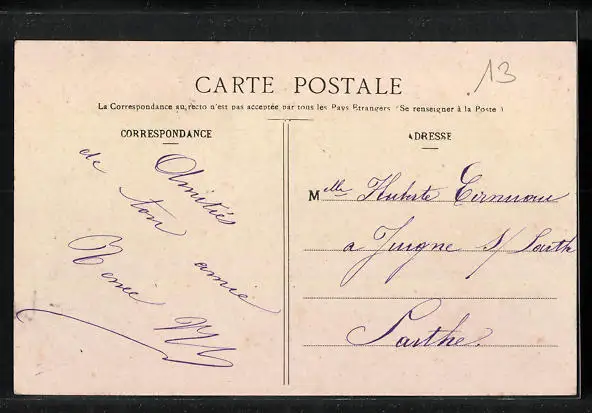 13
CARTE POSTALE
La Correspondance au recto n'est pas acceptée par tous les Pays Etrangers (Se renseigner à la Poste)
CORRESPONDANCE
Amitiés
de ton amie
Renée
ADRESSE
Melle
a Juigne s/ Sarthe
Sarthe.